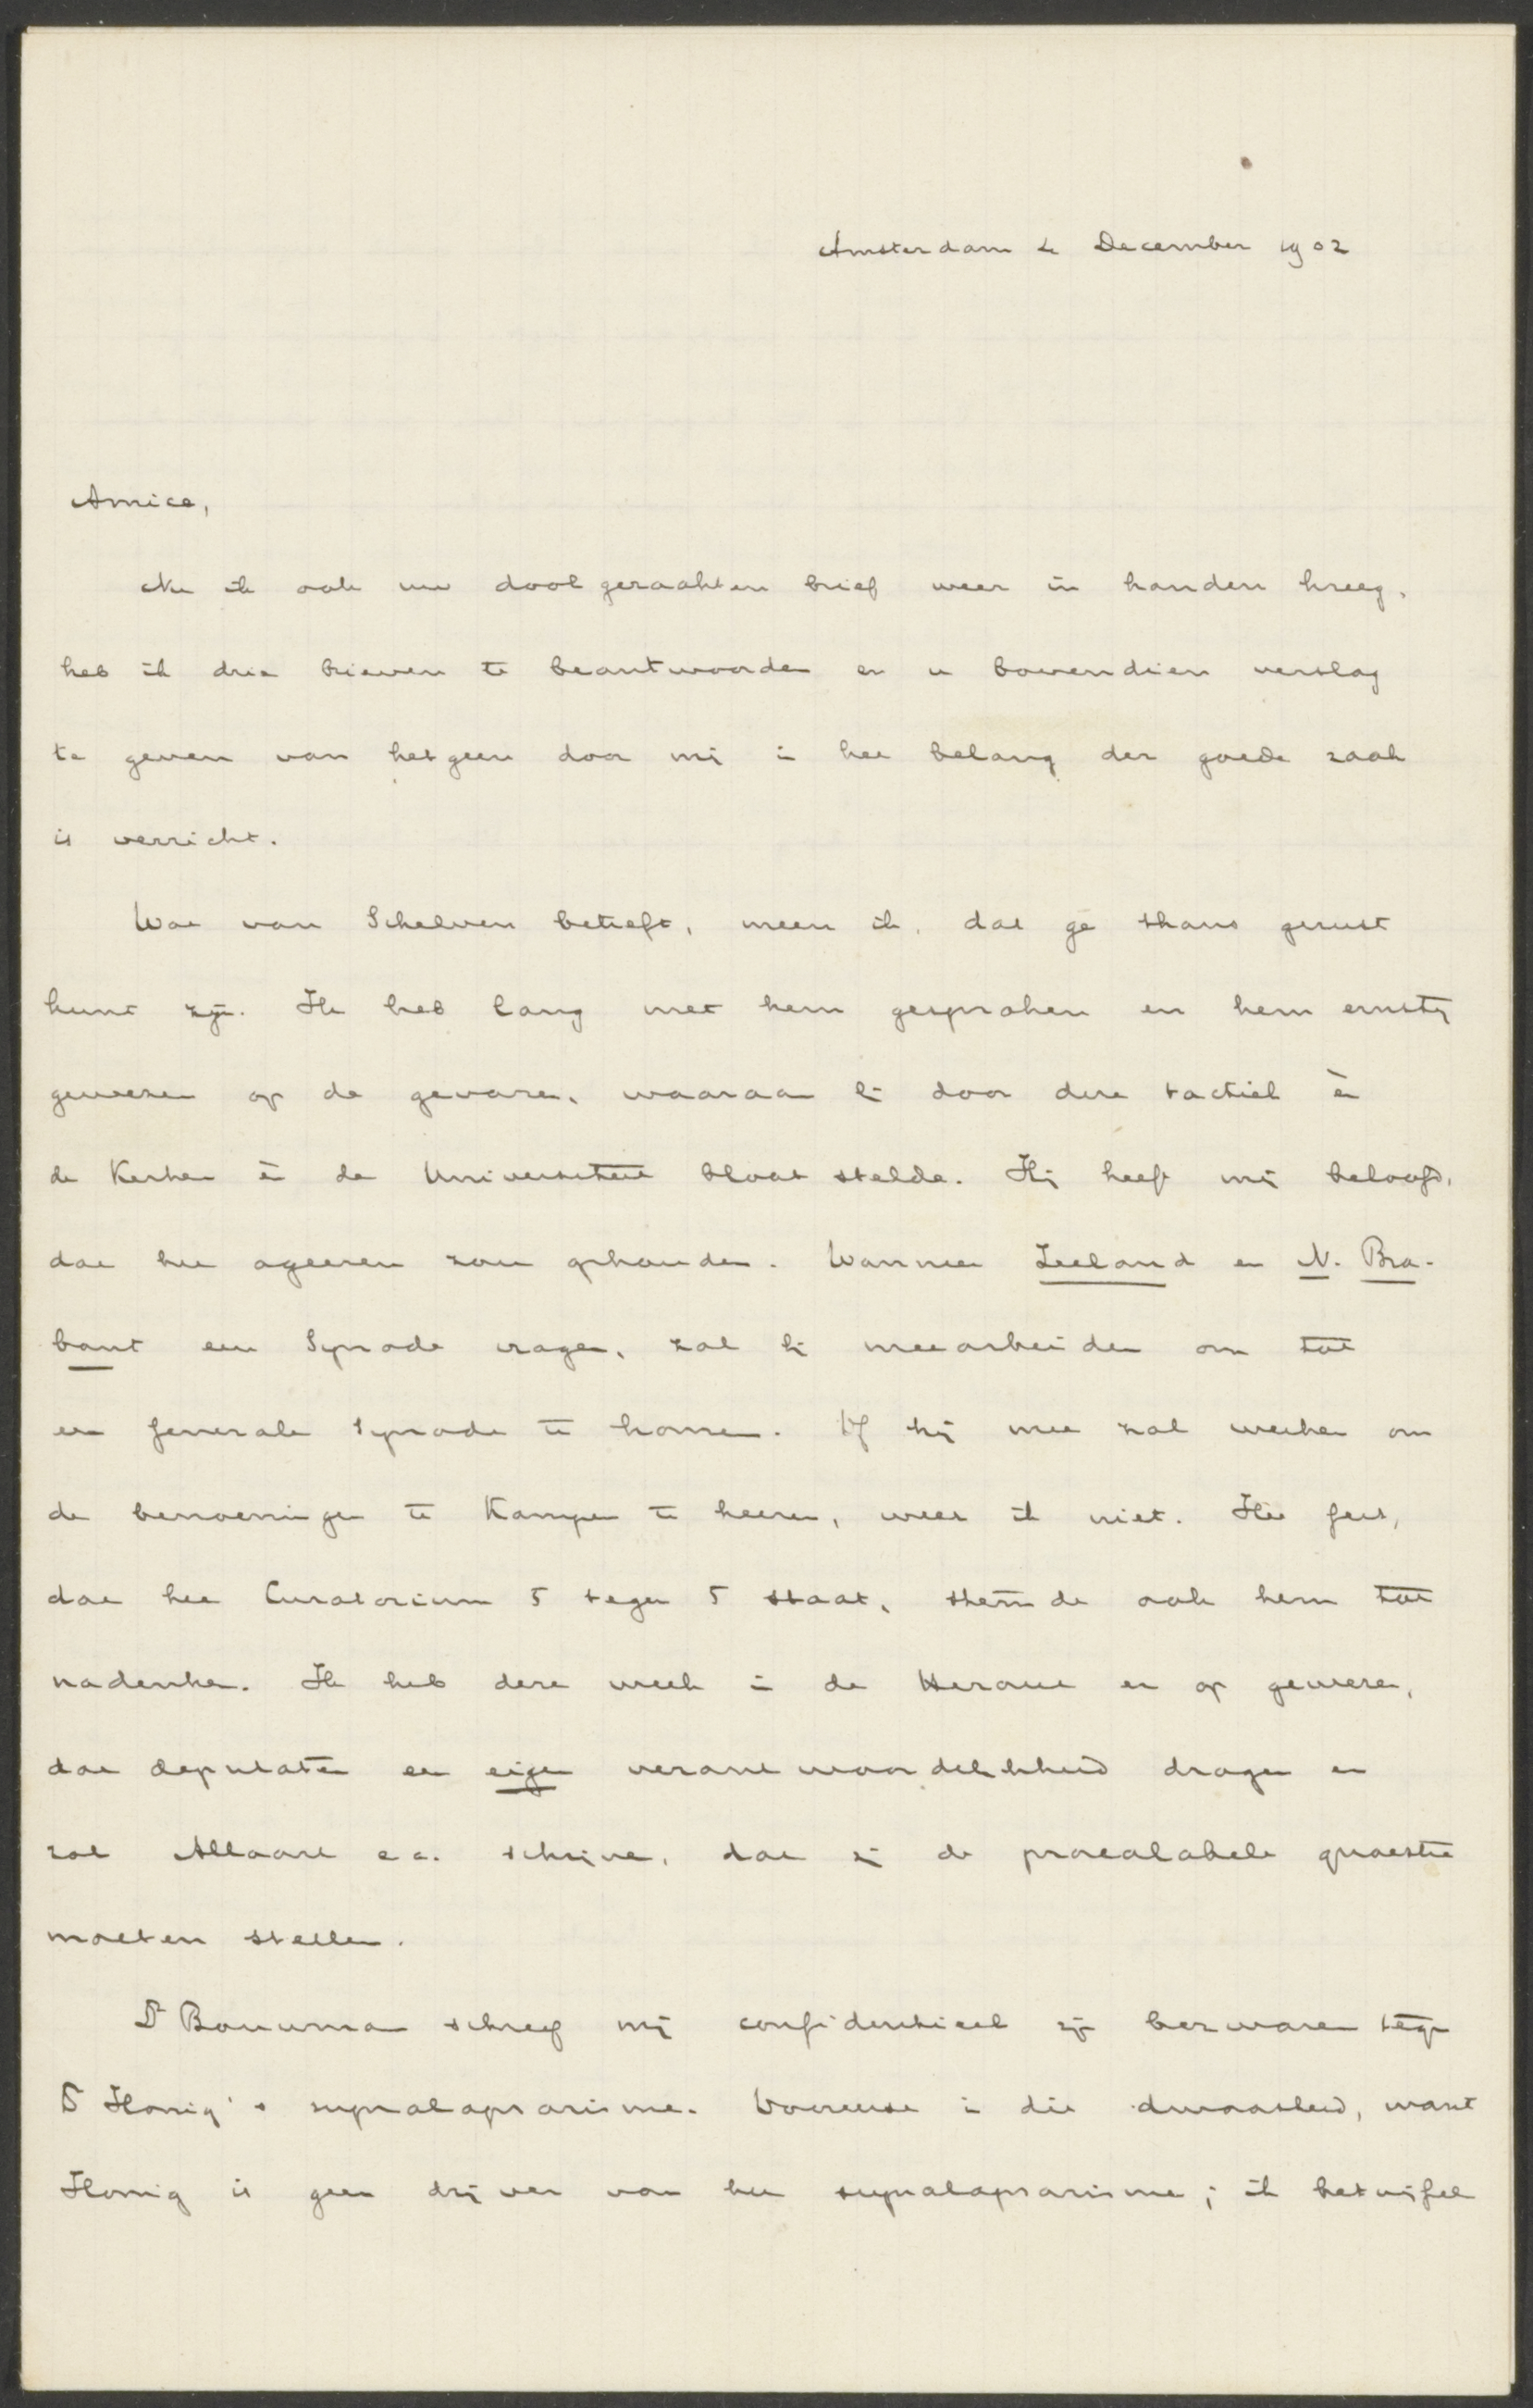 Amsterdam 4 December 1902
Amice,
Nu ik ook uw doolgeraakten brief weer in handen kreeg,
heb ik drie brieven te beantwoorden en u bovendien verslag
te geven van hetgeen door mij in het belang der goede zaak
is verricht.
Wat van Schelven betreft, meen ik, dat ge thans gerust
kunt zijn. Ik heb lang met hem gesproken en hem ernstig
gewezen op de gevaren, waaraan hij door deze tactiek èn
de Kerken èn de Universiteit bloot stelde. Hij heeft mij beloofd,
dat het ageeren zou ophouden. Wanneer Zeeland en N. Bra-
bant een Synode vragen, zal hij meearbeiden om tot
een generale Synode te komen. Of hij mee zal werken om
de benoemingen te Kampen te keeren, weet ik niet. Het feit,
dat het Curatorium 5 tegen 5 staat, stemde ook hem tot
nadenken. Ik heb deze week in de Heraut er op gewezen,
dat deputaten een eigen verantwoordelijkheid dragen en
zal Allaart e.a. schrijven, dat zij de prealabele quaestie
moeten stellen.
Dr Bouwman schreef mij confidentieel zijn bezwaren tegen
Dr Honig's supralapsarisme. in die dwaasheid, want
Honig is geen drijver van het supralapsarisme; ik betwijfel